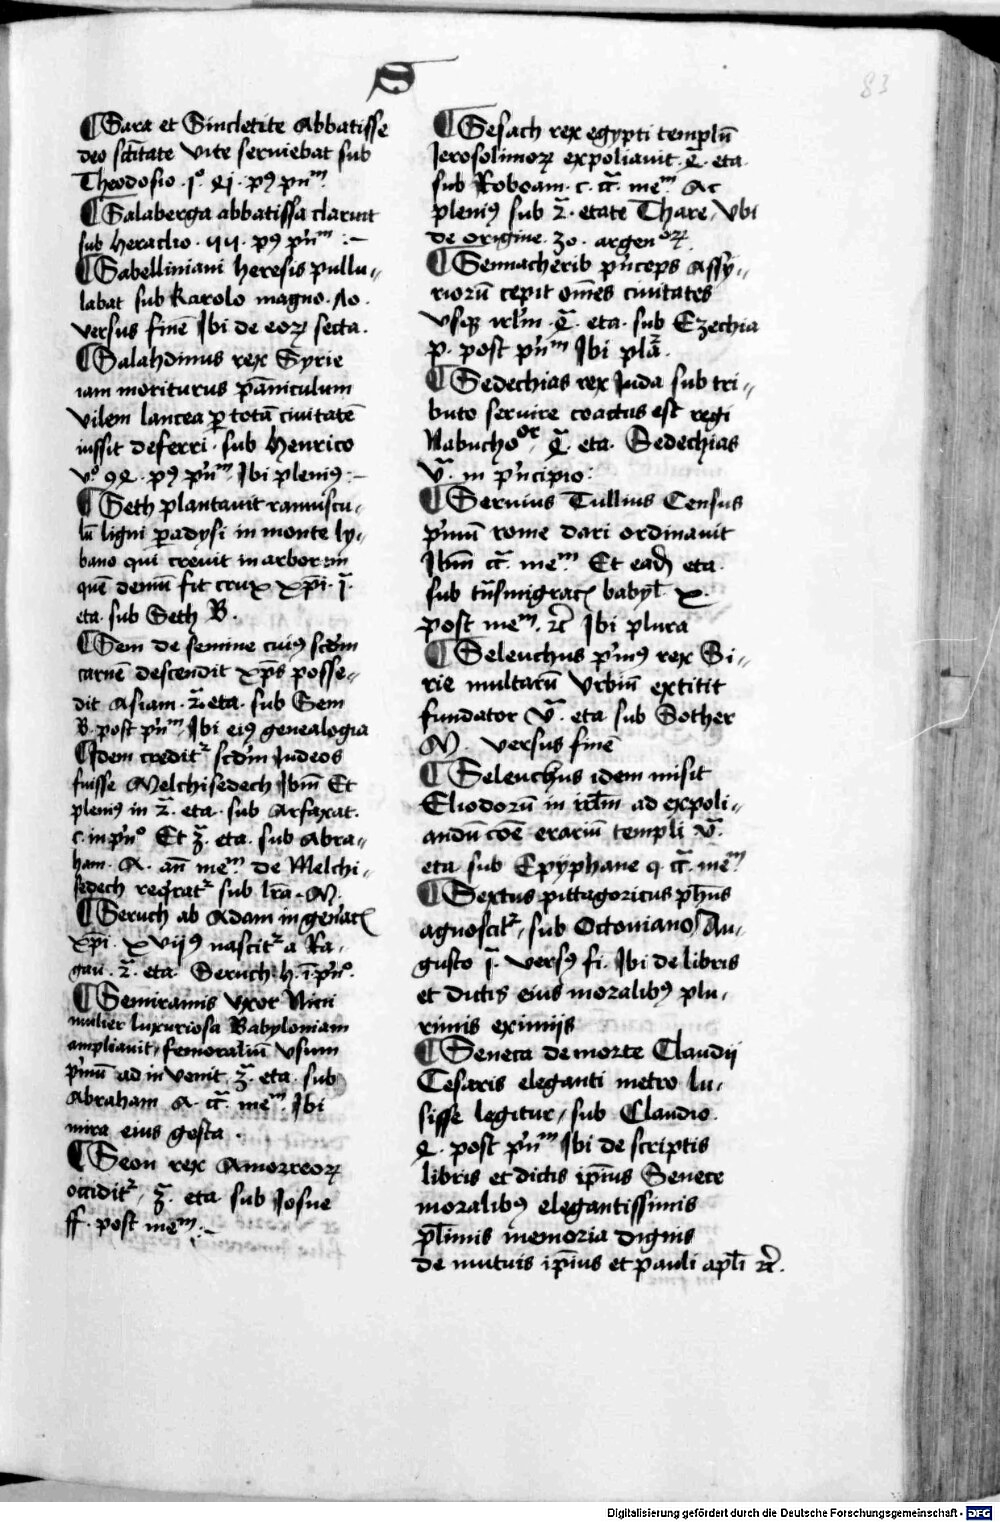 S
83
¶Sara et Sincletite Abbatisse
deo sctītate vite serviebat sub
Theodosio · j° · ꝑꝯ pn̄m
¶Salaberga abbatissa claruit
sub heraclio · pꝯ pn̄m :~
¶Sabelliniani heresis pullu„
labat sub karolo magno · Ao ·
versus finē Ibi de eoꝝ secta ·
¶Salahdinus rex Syrie
iam moriturus pāniculum
vilem lancea ꝑ totā civitatē
iussit deferri · sub henrico
v° pꝯ pn̄m Ibi pleniꝯ :~
¶Seth plantavit ramuscu„
lū ligni ꝑadysi in monte ly„
bano qui crevit in arborem
quē demū fit crux xp̄i · j̄ ·
eta · sub Seth B ·
¶Sem de semine cuiꝯ scd̄m
carnē descendit xp̄s posse„
dit Asiam · 2̄ · eta · sub Sem
B · post pn̄m Ibi eiꝯ genealogia
¶Idem credit᷑ scd̄m Iudeos
fuisse Melchisedech Ibm̄ Et
pleniꝯ in 2̄ · eta · sub Arfaxat ·
c · in pn̄° Et 3̄ · eta · sub Abra„
ham · A · an̄ mem · de Melchi„
sedech reqrat᷑ sub lrā · M ·
¶Seruch ab Adam in genac̄
xp̄i · xvijꝯ nascit᷑ a Ra„
gau · 2̄ · eta · Seruch · h · ī · pn̄° ·
¶Semiramis vxor Nini
mulier luxuriosa Babyloniam
ampliavit / femoraliū vsum
pꝛimū ad in venit · 3̄ · eta · sub
Abraham A · cc̄ · mem · Ibi
mira eius gesta ·
¶Seon rex Amorreoꝝ
occidit᷑ / 3̄ · eta sub Iosue
ff · post mem :~
¶Sesach rex egypti templū
Ierosolimoꝝ expoliavit · eta ·
sub Roboam · c · cc̄ · mem · Ac
pleniꝯ sub 2̄ · etate Thare / vbi
de origine · 30 · argenoꝝ
¶Sennacherib pn̄ceps Assy„
riorū cepit om̄es civitates
vsqꝫ irl̄m · eta · sub Ezechia
p · post pn̄m Ibi plā ·
¶Sedechias rex Iuda sub tri„
buto servire coactus est regi
Nabuchoor / eta · Sedechias
v̄ · in pn̄cipio ·
¶Servius Tullius Census
pꝛimū rome dari ordinavit
Ibm̄ cc̄ · mem · Et ead̄ eta ·
sub tn̄smigrac̄ babyl̄ · x ·
post mem · ⁊c̄ Ibi plura
¶Seleuchus pꝛimꝯ rex Si„
rie multarū vrbiū extitit
fundator v̄ · eta · sub Sother
M · versus finē
¶Seleuchus idem misit
Eliodorū in irl̄m ad expoli„
andū cōe erariū templi v̄ ·
eta sub Epyphane q · cc̄ · mem
¶Sextus pittagoricus ph̄us
agnoscit᷑ / sub Octoviano Au„
gusto j̄ · versꝯ fi · Ibi de libris
et dictis eius moralibꝯ plu„
rimis eximijs
¶Seneca de morte Claudij
Cesaris eleganti metro lu„
sisse legitur / sub Claudio ·
post pn̄m Ibi de scriptis
libris et dictis ip̄ius Senece
moralibꝯ elegantissimis
pl̄imis memoria dignis
de mutuis ip̄ius et pauli apl̄i ⁊c̄ ·
Digitalisierung gefördert durch die Deutsche Forschungsgemeinschaft - DFG